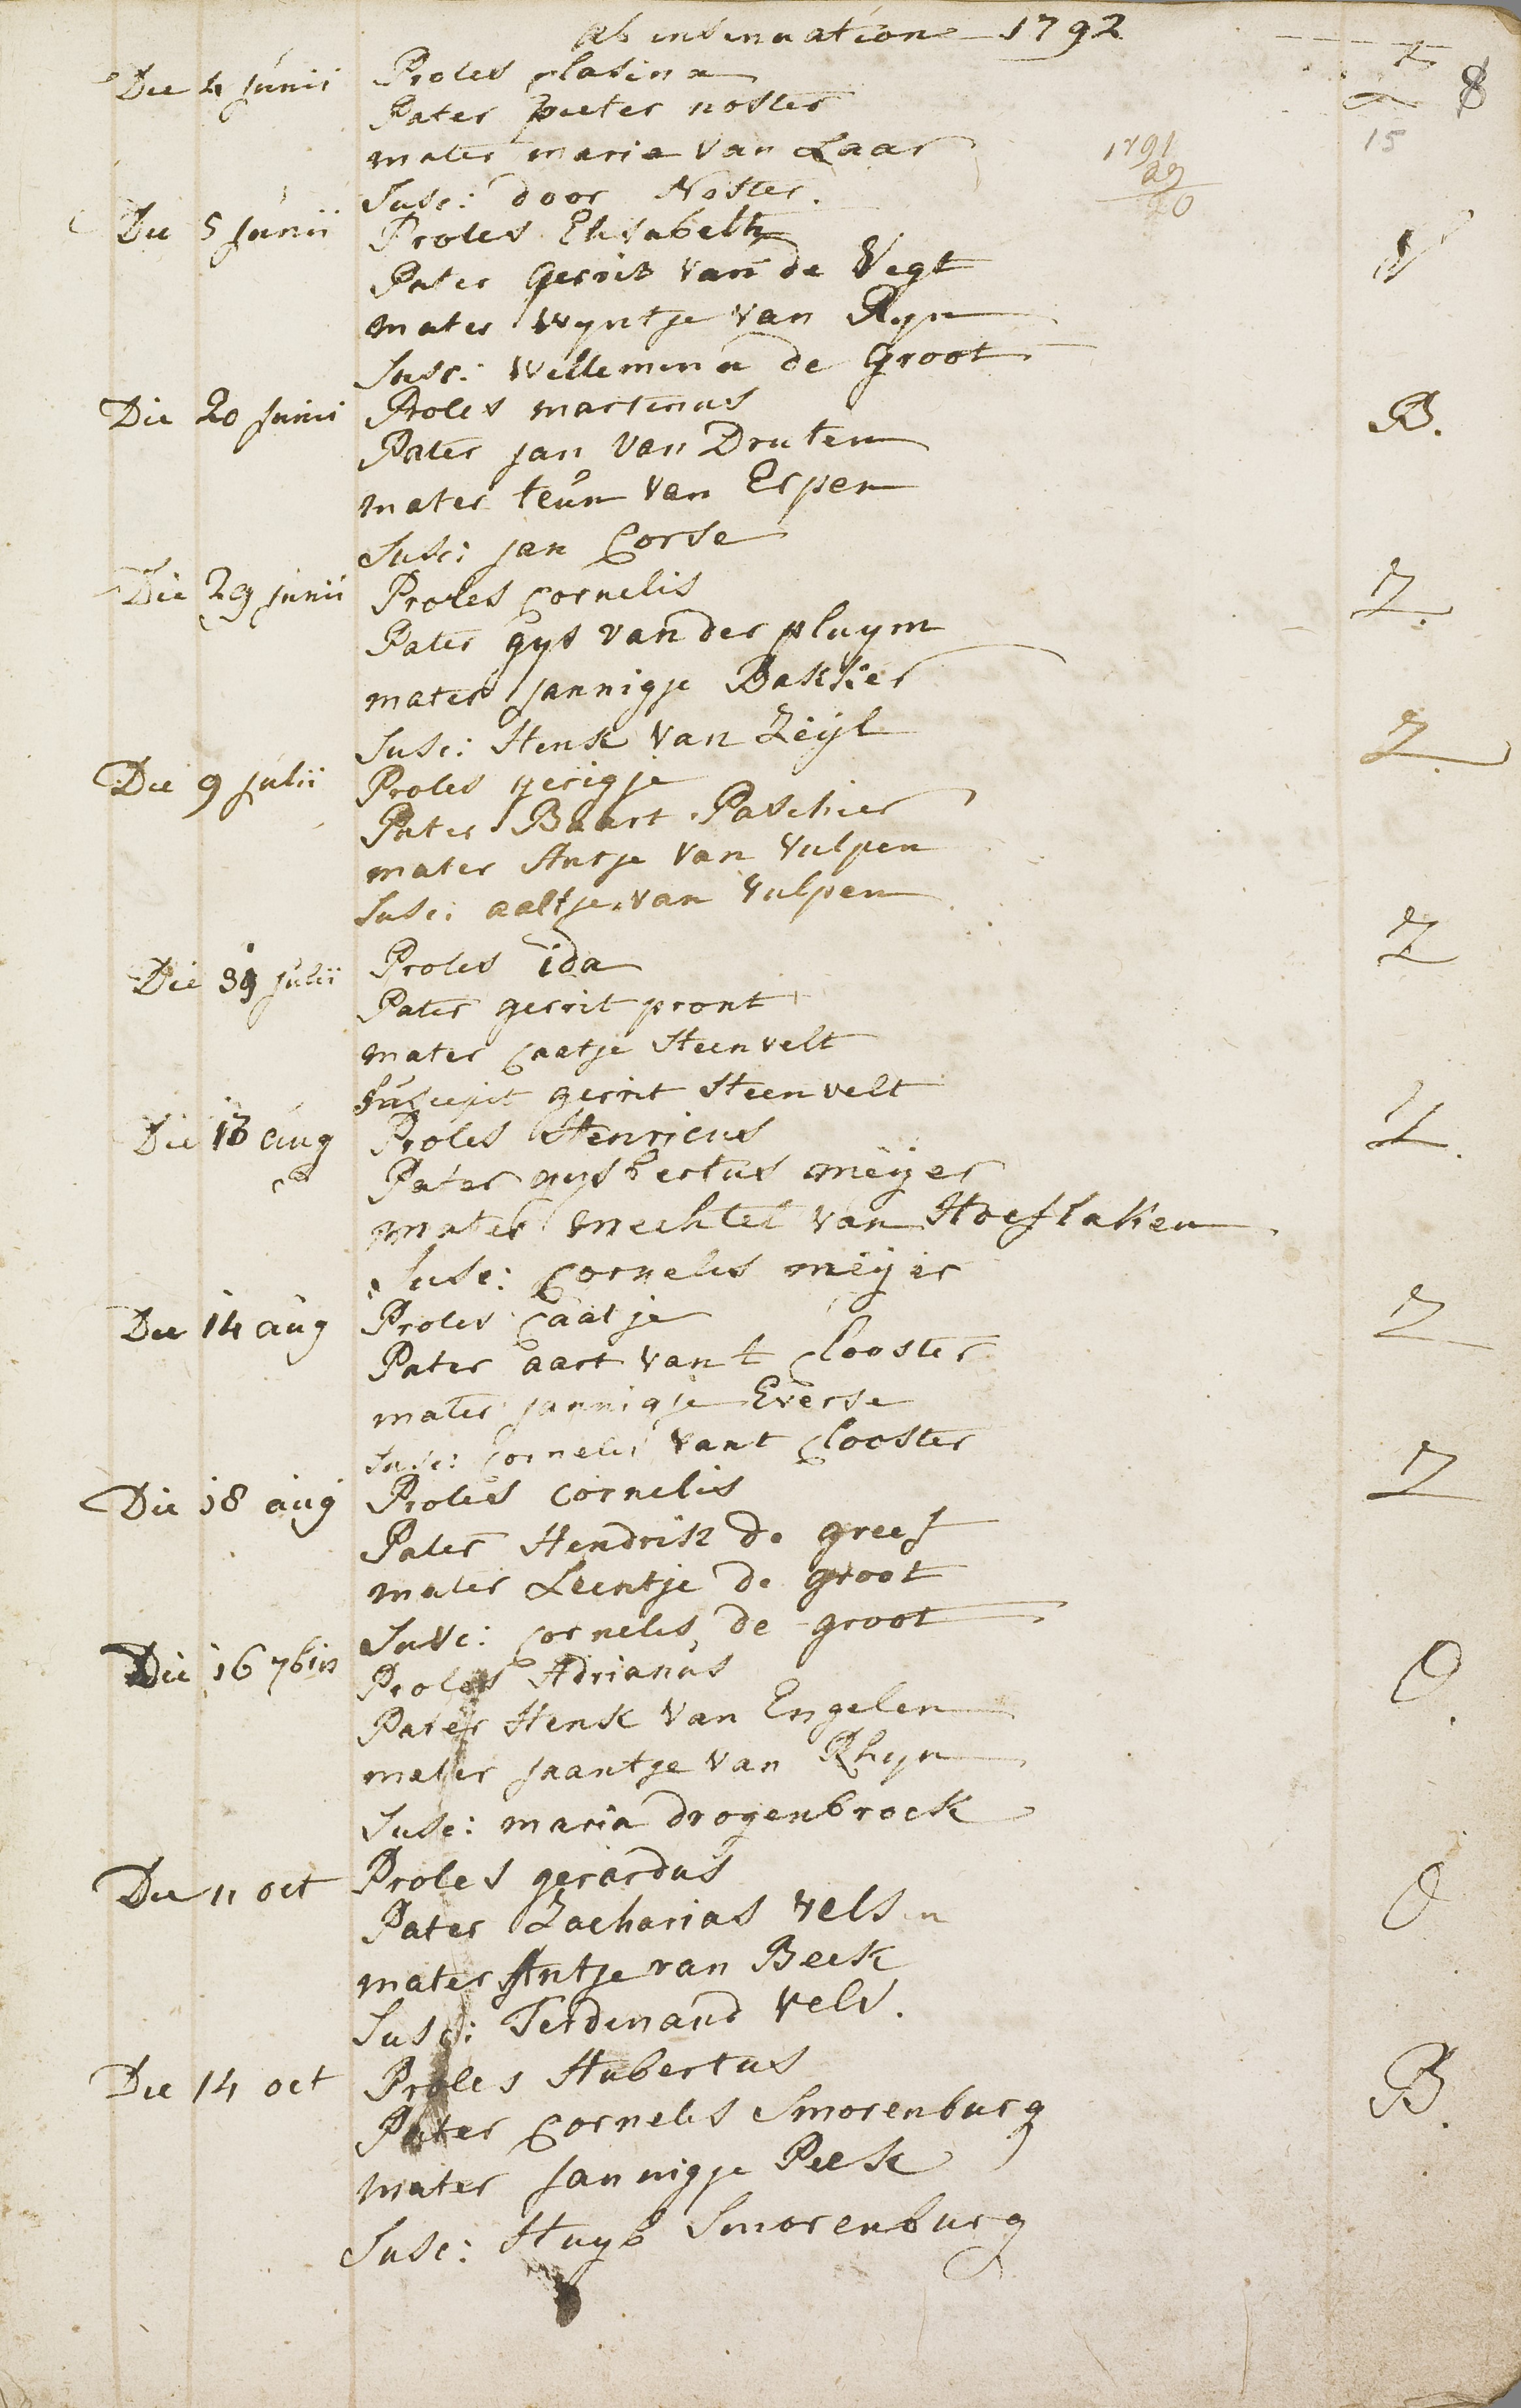 ab insinuatione 1792
Die 4 junii Proles Clasina
Pater pieter noster
mater maria van Laar
Susc: door Noster.
1791
29
20
8
15
Die 5 junii Proles Elisabeth V
Pater Gerrit van de Vegt
mater Wyntje van Ryn
Susc: Willemina de Groot
Die 20 junii Proles martinus B.
Pater jan van Druten
mater teun van Erpen
Susc: jan Corse
Die 29 junii Proles Cornelis Z.
Pater gys van der pluym
mater jannigje Bakker
Susc: Henk van Zeyl
Die 9 julii Proles gerigje Z.
Pater Baart Paschier
mater Antje van Vulpen
Susc: aaltje van Vulpen
Die julii Proles ida Z
Pater gerrit pront
mater Caatje Steenvelt
Suscepit gerrit Steenvelt
Die 13 aug Proles Henricus Z.
Pater gysbertus meijer
mater mechtel van Hoeflaken
Susc: Cornelis meijer
Die 14 aug Proles Caatje Z
Pater aart van t Clooster
mater jannigje Everse
Susc: Cornelis vant Clooster
Die 18 aug Proles Cornelis Z
Pater Hendrik de greef
mater Leentje de groot
Susc: Cornelis de groot
Die 16 7bris Proles Adrianus O.
Pater Henk van Engelen
mater jaantje van Rhyn
Susc: maria drogenbroek
Die 11 oct Proles gerardus O
Pater Zacharias Vels
mater Antje van Beek
Susc: Ferdinand Vels.
Die 14 oct Proles Hubertus B.
Pater Cornelis Smorenburg
mater jannigje Peek
Susc: Huyb Smorenburg